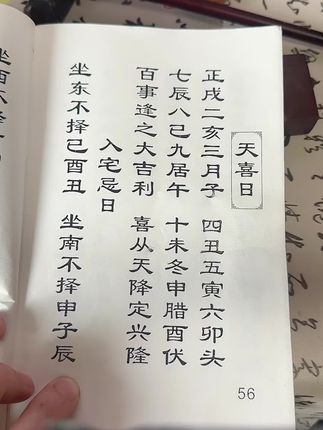 天喜日
正戌二亥三月子 四丑五寅六卯头
七辰八巳九居午 十未冬申腊酉伏
百事逢之大吉利 喜从天降定兴隆
入宅忌日
坐东不择巳酉丑 坐南不择申子辰
56